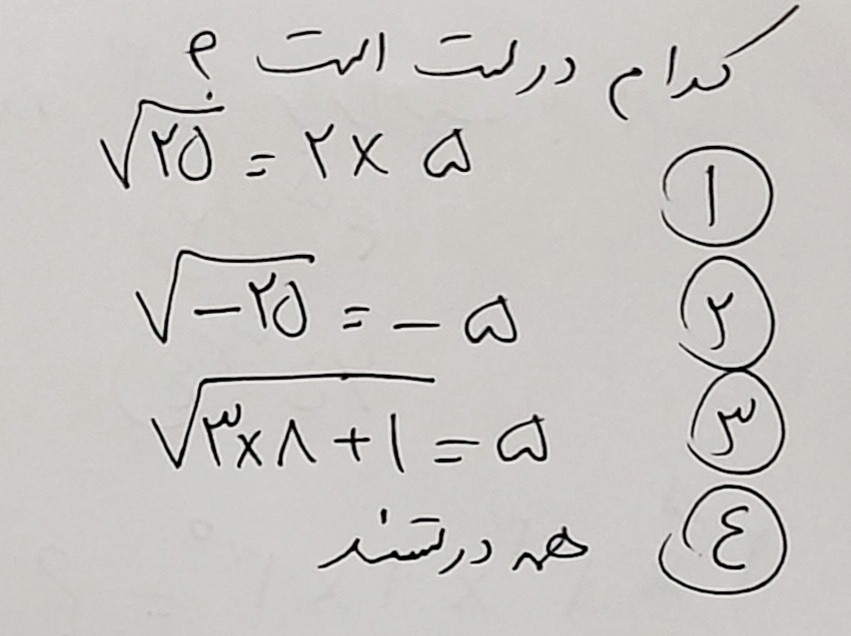 کدام درست است ؟
۱ √۲۵ = ۲ × ۵
۲ √-۲۵ = - ۵
۳ √۳×۸+۱ = ۵
٤ همه درستند